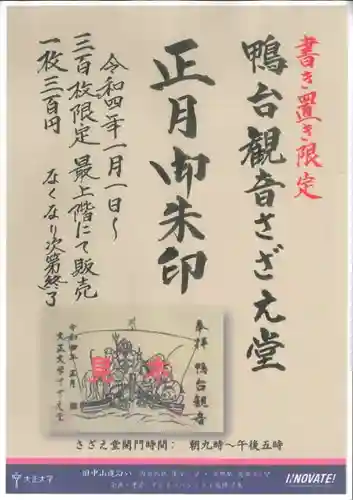 書き置き限定
鴨台観音さざえ堂
正月御朱印
令和四年一月一日〜
三百枚限定 最上階にて販売
一枚三百円
なくなり次第終了
奉拝 鴨台観音
見本
令和四年 正月
大正大学さざえ堂
さざえ堂開門時間: 朝九時〜午後五時
大正大学
旧中山道沿い
I/NOVATE!